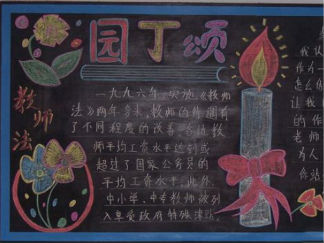 园丁颂
教师法
一九九六年,实施《教师
法》两年多来,教师的待遇有
了不同程度的改善
师平均工资水平达到或
超过了国家公务员的
平均工资水平。此外,
中小学、中专教师被列
入享受政府特殊津贴
我认
作为
怎么
让我
的作
老师
为人